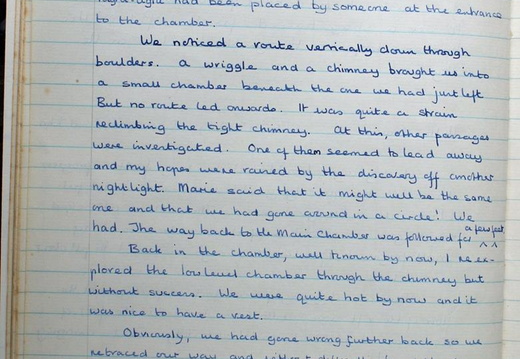 had been placed by someone at the entrance
to the chamber.
We noticed a route vertically down through
boulders. A wriggle and a chimney brought us into
a small chamber beneath the one we had just left
But no route led onwards. It was quite a strain
reclimbing the tight chimney. At this, other passages
were investigated. One of them seemed to lead away
and my hopes were rained by the discovery off another
nightlight. Marie said that it might well be the same
one and that we had gone around in a circle! We
a few feet
had. The way back to the Main Chamber was followed for ^^
Back in the chamber, well known by now, I re ex-
plored the low level chamber through the chimney but
without success. We were quite hot by now and it
was nice to have a rest.
Obviously, we had gone wrong further back so we
retraced our way and